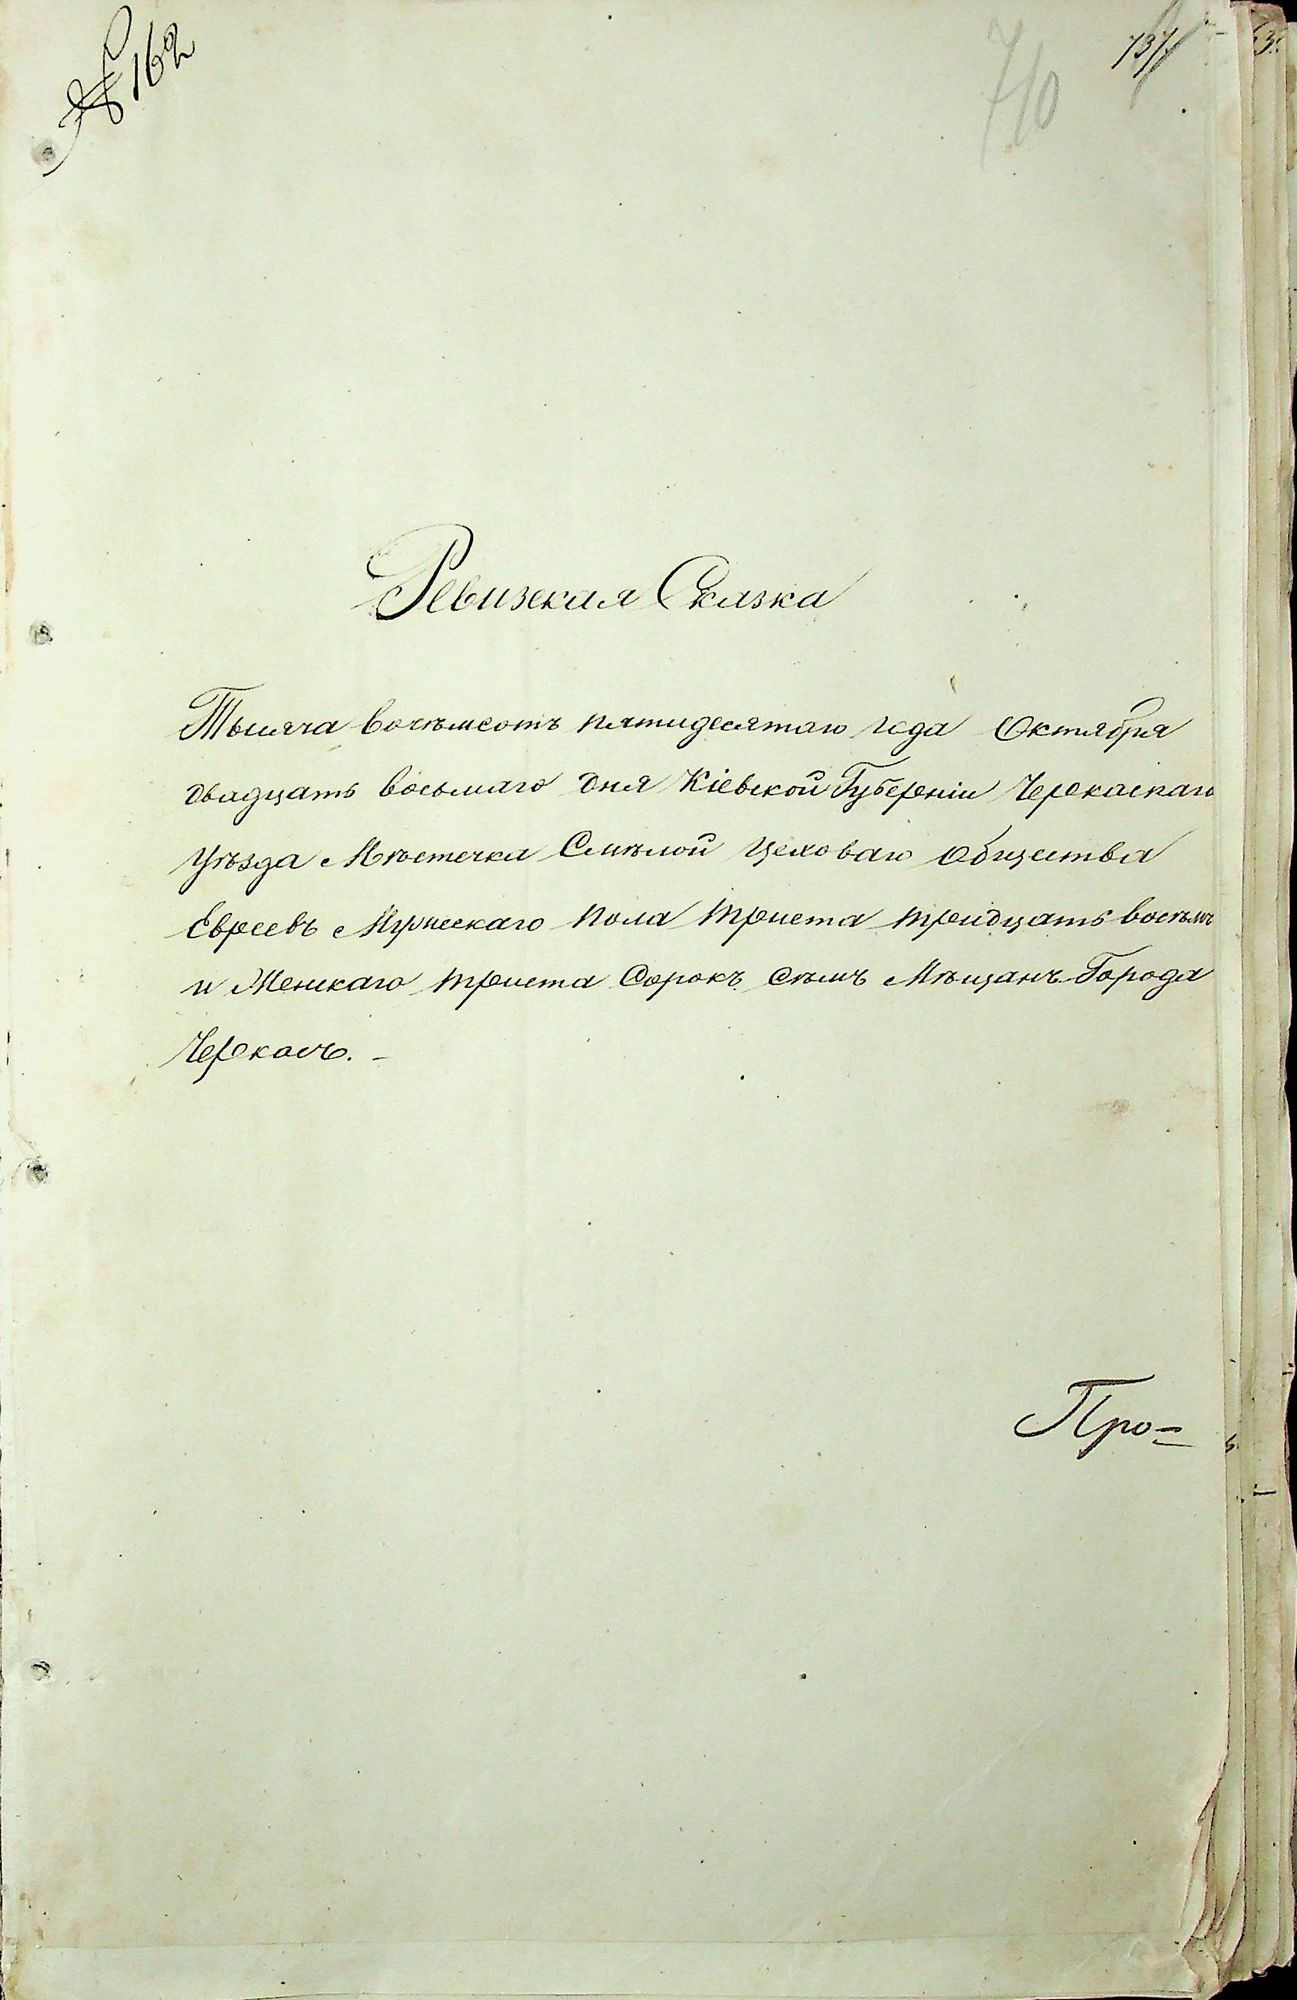 № 162
710
737
Ревизская Сказка
Тысяча восѣмсотъ пятидесятаго года Октября
двадцать восьмаго дня Кіевской Губерніи Черкаскаго
Уѣзда Мѣстечка Смѣлой Цеховаго Общества
Евреевъ Мужескаго пола триста тридцать восѣмъ
и Женскаго триста Сорокъ сѣмъ Мѣщанъ Города
Черкасъ. –
Про=